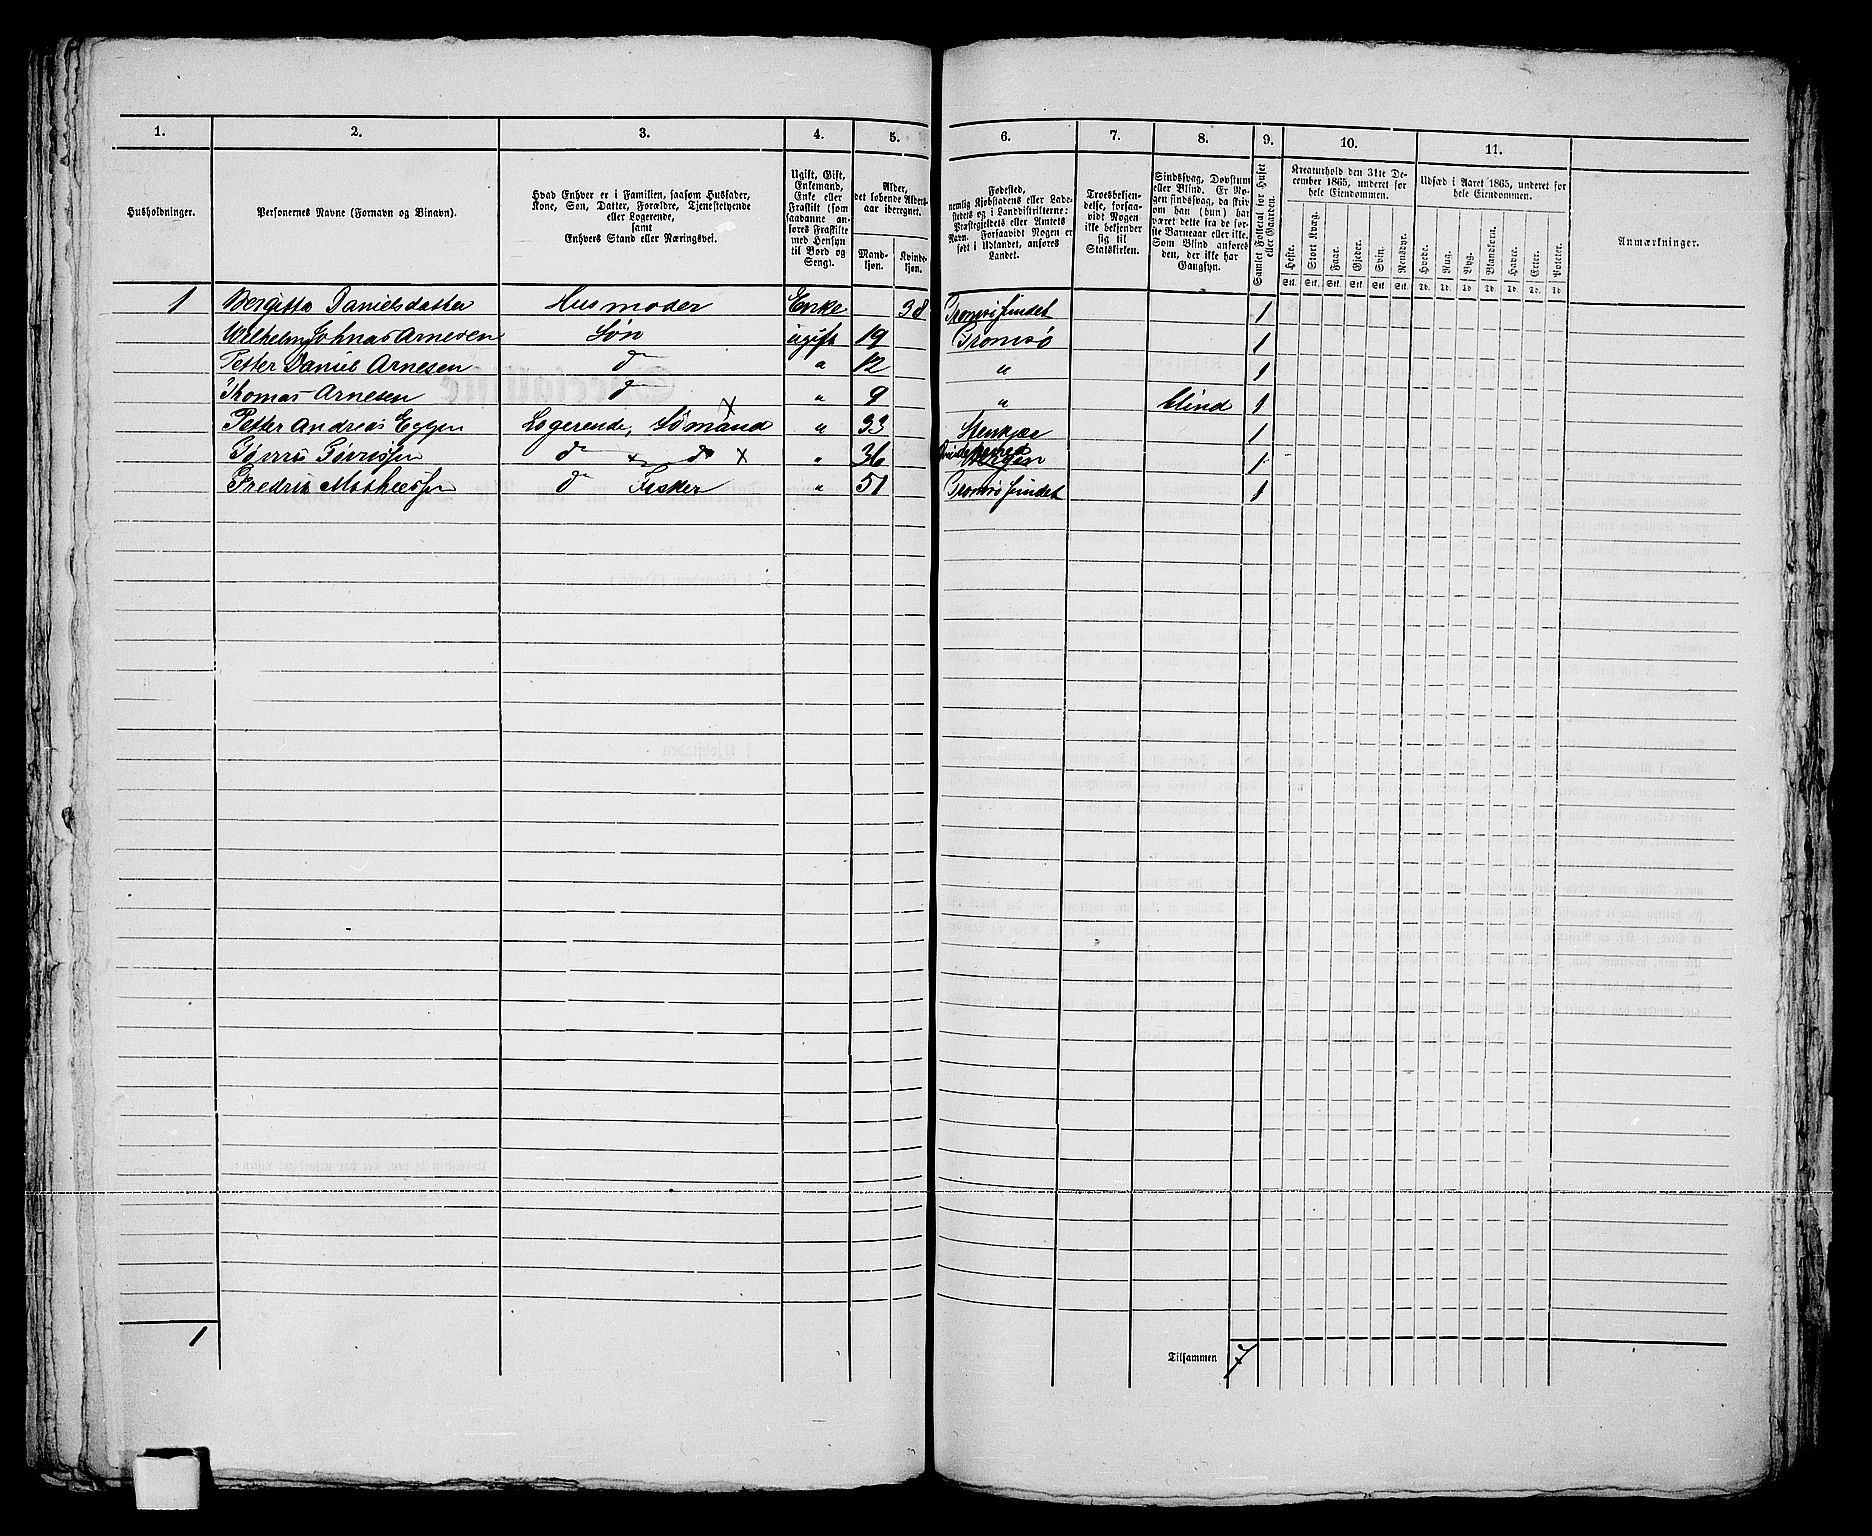 1. 2. 3. 4. 5. 6. 7. 8. 9. 10. 11.
Husholdninger.
Personernes Navne (Fornavn og Binavn).
Hvad Enhver er i Familien, saasom Husfader,
Kone, Søn, Datter, Forældre, Tjenestetyende
eller Logerende,
samt
Enhvers Stand eller Næringsvei.
Ugift, Gift,
Enkemand,
Enke eller
Fraskilt (som
saadanne an-
føres Fraskilte
med Hensyn
til Bord og
Seng).
Alder,
det løbende Alders-
aar iberegnet.
Mand-
kjøn.
Kvinde-
kjøn.
Fødested,
nemlig Kjøbstadens eller Lade-
stedets og i Landdistrikterne:
Præstegjeldets eller Amtets
Navn. Forsaavidt Nogen er
født i Udlandet, anføres
Landet.
Troesbekjen-
delse, forsaa-
vidt Nogen
ikke bekjender
sig til
Statskirken.
Sindssvag, Døvstum
eller Blind. Er No-
gen sindssvag, da skriv
om han (hun) har
været dette fra de før-
ste Barneaar eller ikke.
Som Blind anføres
den, der ikke har
Gangsyn.
Samlet Folketal for Huset
eller Gaarden.
Kreaturhold den 31te De-
cember 1865, underet for
hele Eiendommen.
Heste. Stort Kvæg. Faar. Gjeder. Svin. Rensdyr.
Stk. Stk. Stk. Stk. Stk. Stk.
Udsæd i Aaret 1865, underet for
hele Eiendommen.
Hvede. Rug. Byg. Blandkorn. Havre. Erter. Poteter.
Td. Td. Td. Td. Td. Td. Td.
Anmærkninger.
1 Bergitta Danielsdatter Husmoder Enke 38 Tromsösundet 1
Wilhelm Johnas Arnesen Søn ugift 19 Tromsö 1
Petter Daniel Arnesen do " 12 " 1
Thomas Arnesen do " 9 " blind 1
Petter Andreas Eggen Logerende, Sømand x " 33 Stenkjær 1
do x do x " 36 1
Fredrik Mathiessen do Fisker " 51 Tromsösundet 1
1
Tilsammen 7